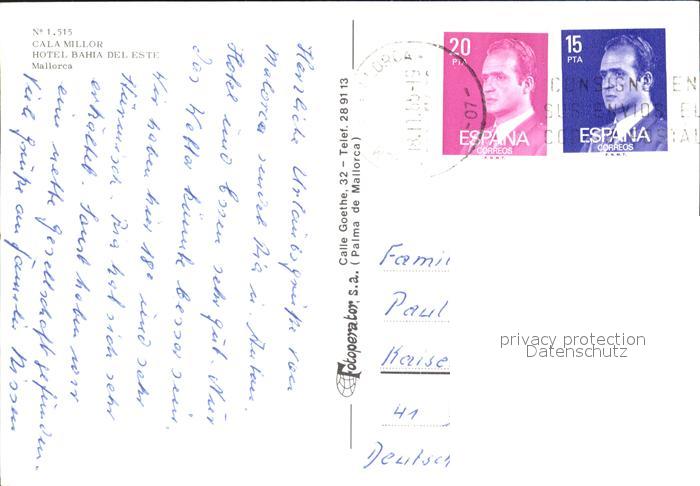 Nº 1.515
CALA MILLOR
HOTEL BAHIA DEL ESTE
Mallorca
Herzliche Urlaubsgrüße von
Malorca sendet Pia u. Anton.
Hotel und Essen sehr gut. Nur
das Wetter könnte besser sein.
Wir haben hier 18° und sehr
stürmisch. Pia hat sich sehr
erkältet. Sonst haben wir
eine nette Gesellschaft gefunden.
Viele Grüße an Familie
Fotoperator, s.a.
Calle Goethe, 32 - Telef. 28 91 13
(Palma de Mallorca)
20
PTA
ESPAÑA
CORREOS
F.N.M.T.
15
PTA
ESPAÑA
CORREOS
F.N.M.T.
-07-
CONSIGNE EN
SUS ENVIOS EL
Famil
Paul
Kaise
41
Deutsch
privacy protection
Datenschutz